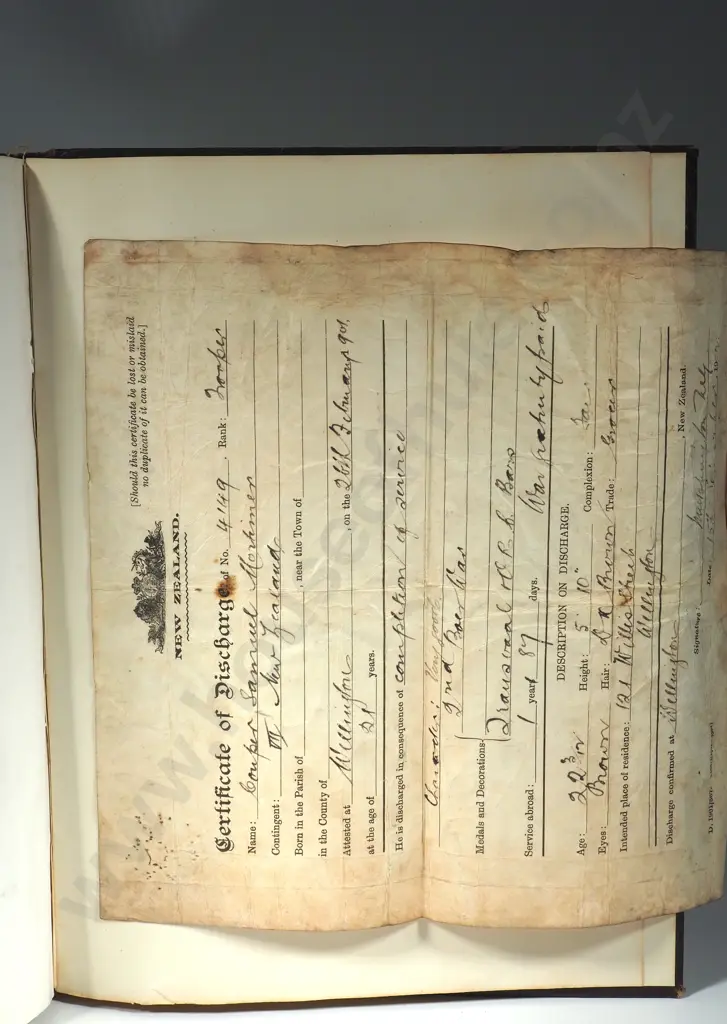 [Should this certificate be lost or mislaid
no duplicate of it can be obtained.]
NEW ZEALAND.
Certificate of Discharge of No. 4149, Rank: Trooper
Name: Couper Samuel Mortimer
Contingent: VII New Zealand
Born in the Parish of , near the Town of
in the County of
Attested at Wellington, on the 26th February 901.
at the age of 21 years.
He is discharged in consequence of completion of service
2nd Boer War
Medals and Decorations Transvaal Bars
Service abroad: 1 year 87 days. War gratuity paid
DESCRIPTION ON DISCHARGE.
Age: 22 Height: 5' 10" Complexion:
Eyes: Brown Hair: Brown Trade: Grocer
Intended place of residence: 121 Willis Street
Wellington
Discharge confirmed at Wellington, New Zealand.
Signature: